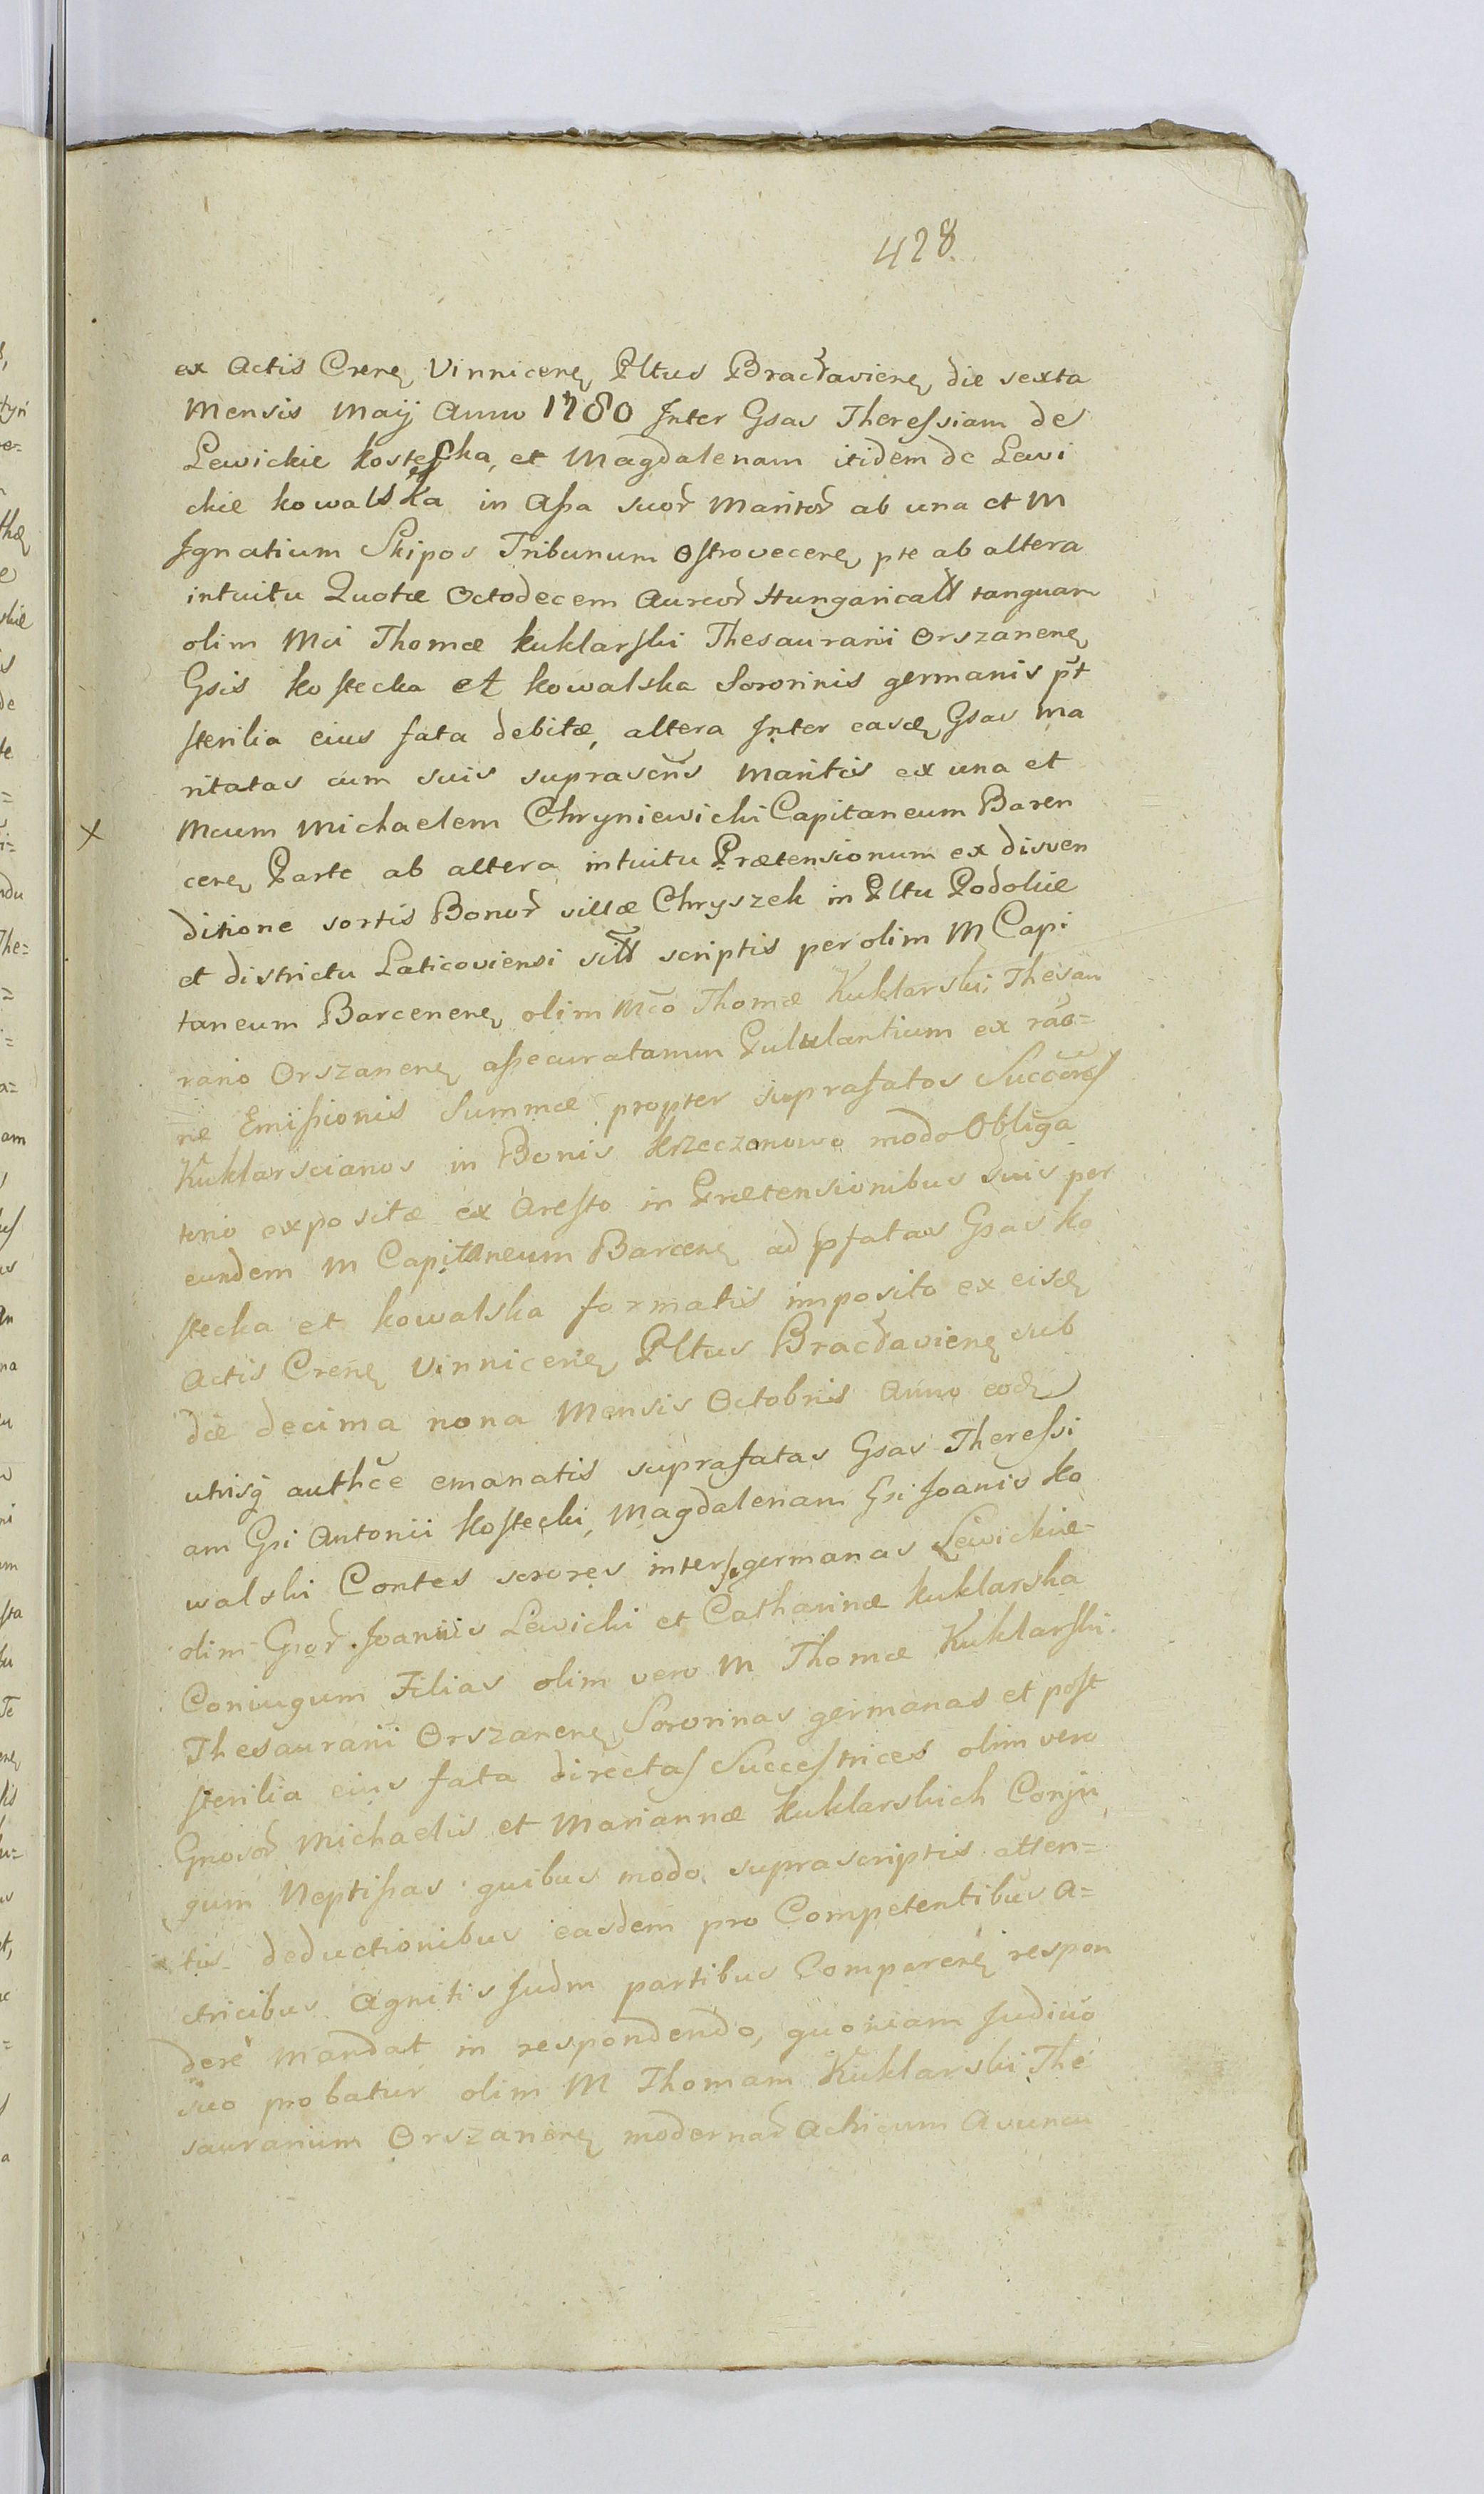 428.
ex Actis Crenẽ Vinnicenẽ Pltus Bracłavienẽ die sexta
Mensis Maij Anno 1780 Inter Gsas Theressiam de
Lewickie kostecka, et Magdalenam itidem de Lewi
ckie kowalska in Assa suor̃ Maritor̃ ab una et M
Ignatium Skipor Tribunum Ostrovecenẽ pte ab altera
intuitu Quotæ Octodecem Aureor̃ Hungaricall tanquam
olim Mci Thomæ kuklarski Thesaurarii Orszanenẽ
Gsis kostecka et kowalska Sororinis germanis pt̃
sterilia eius fata debitæ, altera Inter easdẽ Gsas Ma
ritatas cum suis suprascris̃ Maritis ex una et
Mcum Michaelem Chryniewicki Capitaneum Baren
cenẽ Parte ab altera intuitu Prætensionum ex disven
ditione sortis Bonor̃ villæ Chryszek in Pltu Podoliæ
et districtu Laticoviensi sitt̃ scriptis per olim M Capi
taneum Barcenenẽ olim Mcõ Thomæ Kuklarski, Thesau
rario Orszanenẽ assecuratarum Pullulantium ex raõ=
ne Emissionis Summæ propter suprafatos Succõres
Kuklarscianos in Bonis krzeczonowo modo Obliga
torio expositæ ex Aresto in Prætensionibus suis per
eundem M Capitaneum Barcenẽ ad pfatas Gsas ko
stecka et kowalska formatis imposito ex eisdẽ
Actis Crenẽ Vinnicenẽ Pltus Bracłavienẽ sub
die decima nona Mensis Octobris Anno eodẽ
utrisq̃ authc̃e emanatis suprafatas Gsas Theressi
am Gsi Antonii kostecki, Magdalenam Gsi Joanis ko
walski Contes sorores inter se germanas Lewickie
olim Gsor̃ Joannis Lewicki et Catharinæ kuklarska
Coniugum Filias olim vero M Thomæ Kuklarski
Thesaurarii Orszanenẽ Sororinas germanas et post
sterilia eius fata directas Successtrices olim vero
Gnosor̃ Michaelis et Mariannæ kuklarskich Conju
gum Neptissas quibus modo suprascriptis atten=
tis deductionibus easdem pro Competentibus A=
ctricibus Agnitis Judm partibus Comparenẽ respon
dere mandat in respondendo, quoniam Judicio
suo probatur olim M Thomam Kuklarski The
saurarium Orszanenẽ modernar̃ Avuncu